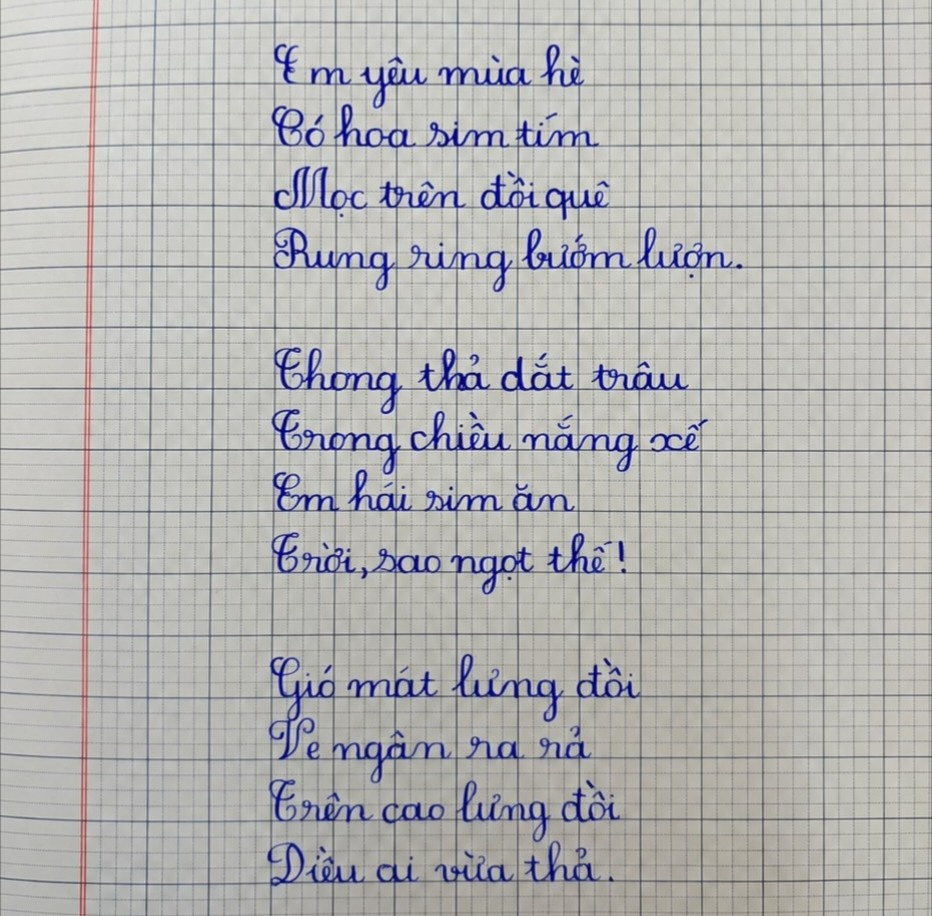 Em yêu mùa hè
Có hoa sim tím
Mọc trên đồi quê
Rung ring bướm lượn.
Thong thả dắt trâu
Trong chiều nắng xế
Em hái sim ăn
Trời, sao ngọt thế!
Gió mát lưng đồi
Ve ngân ra rả
Trên cao lưng đồi
Diều ai vừa thả.